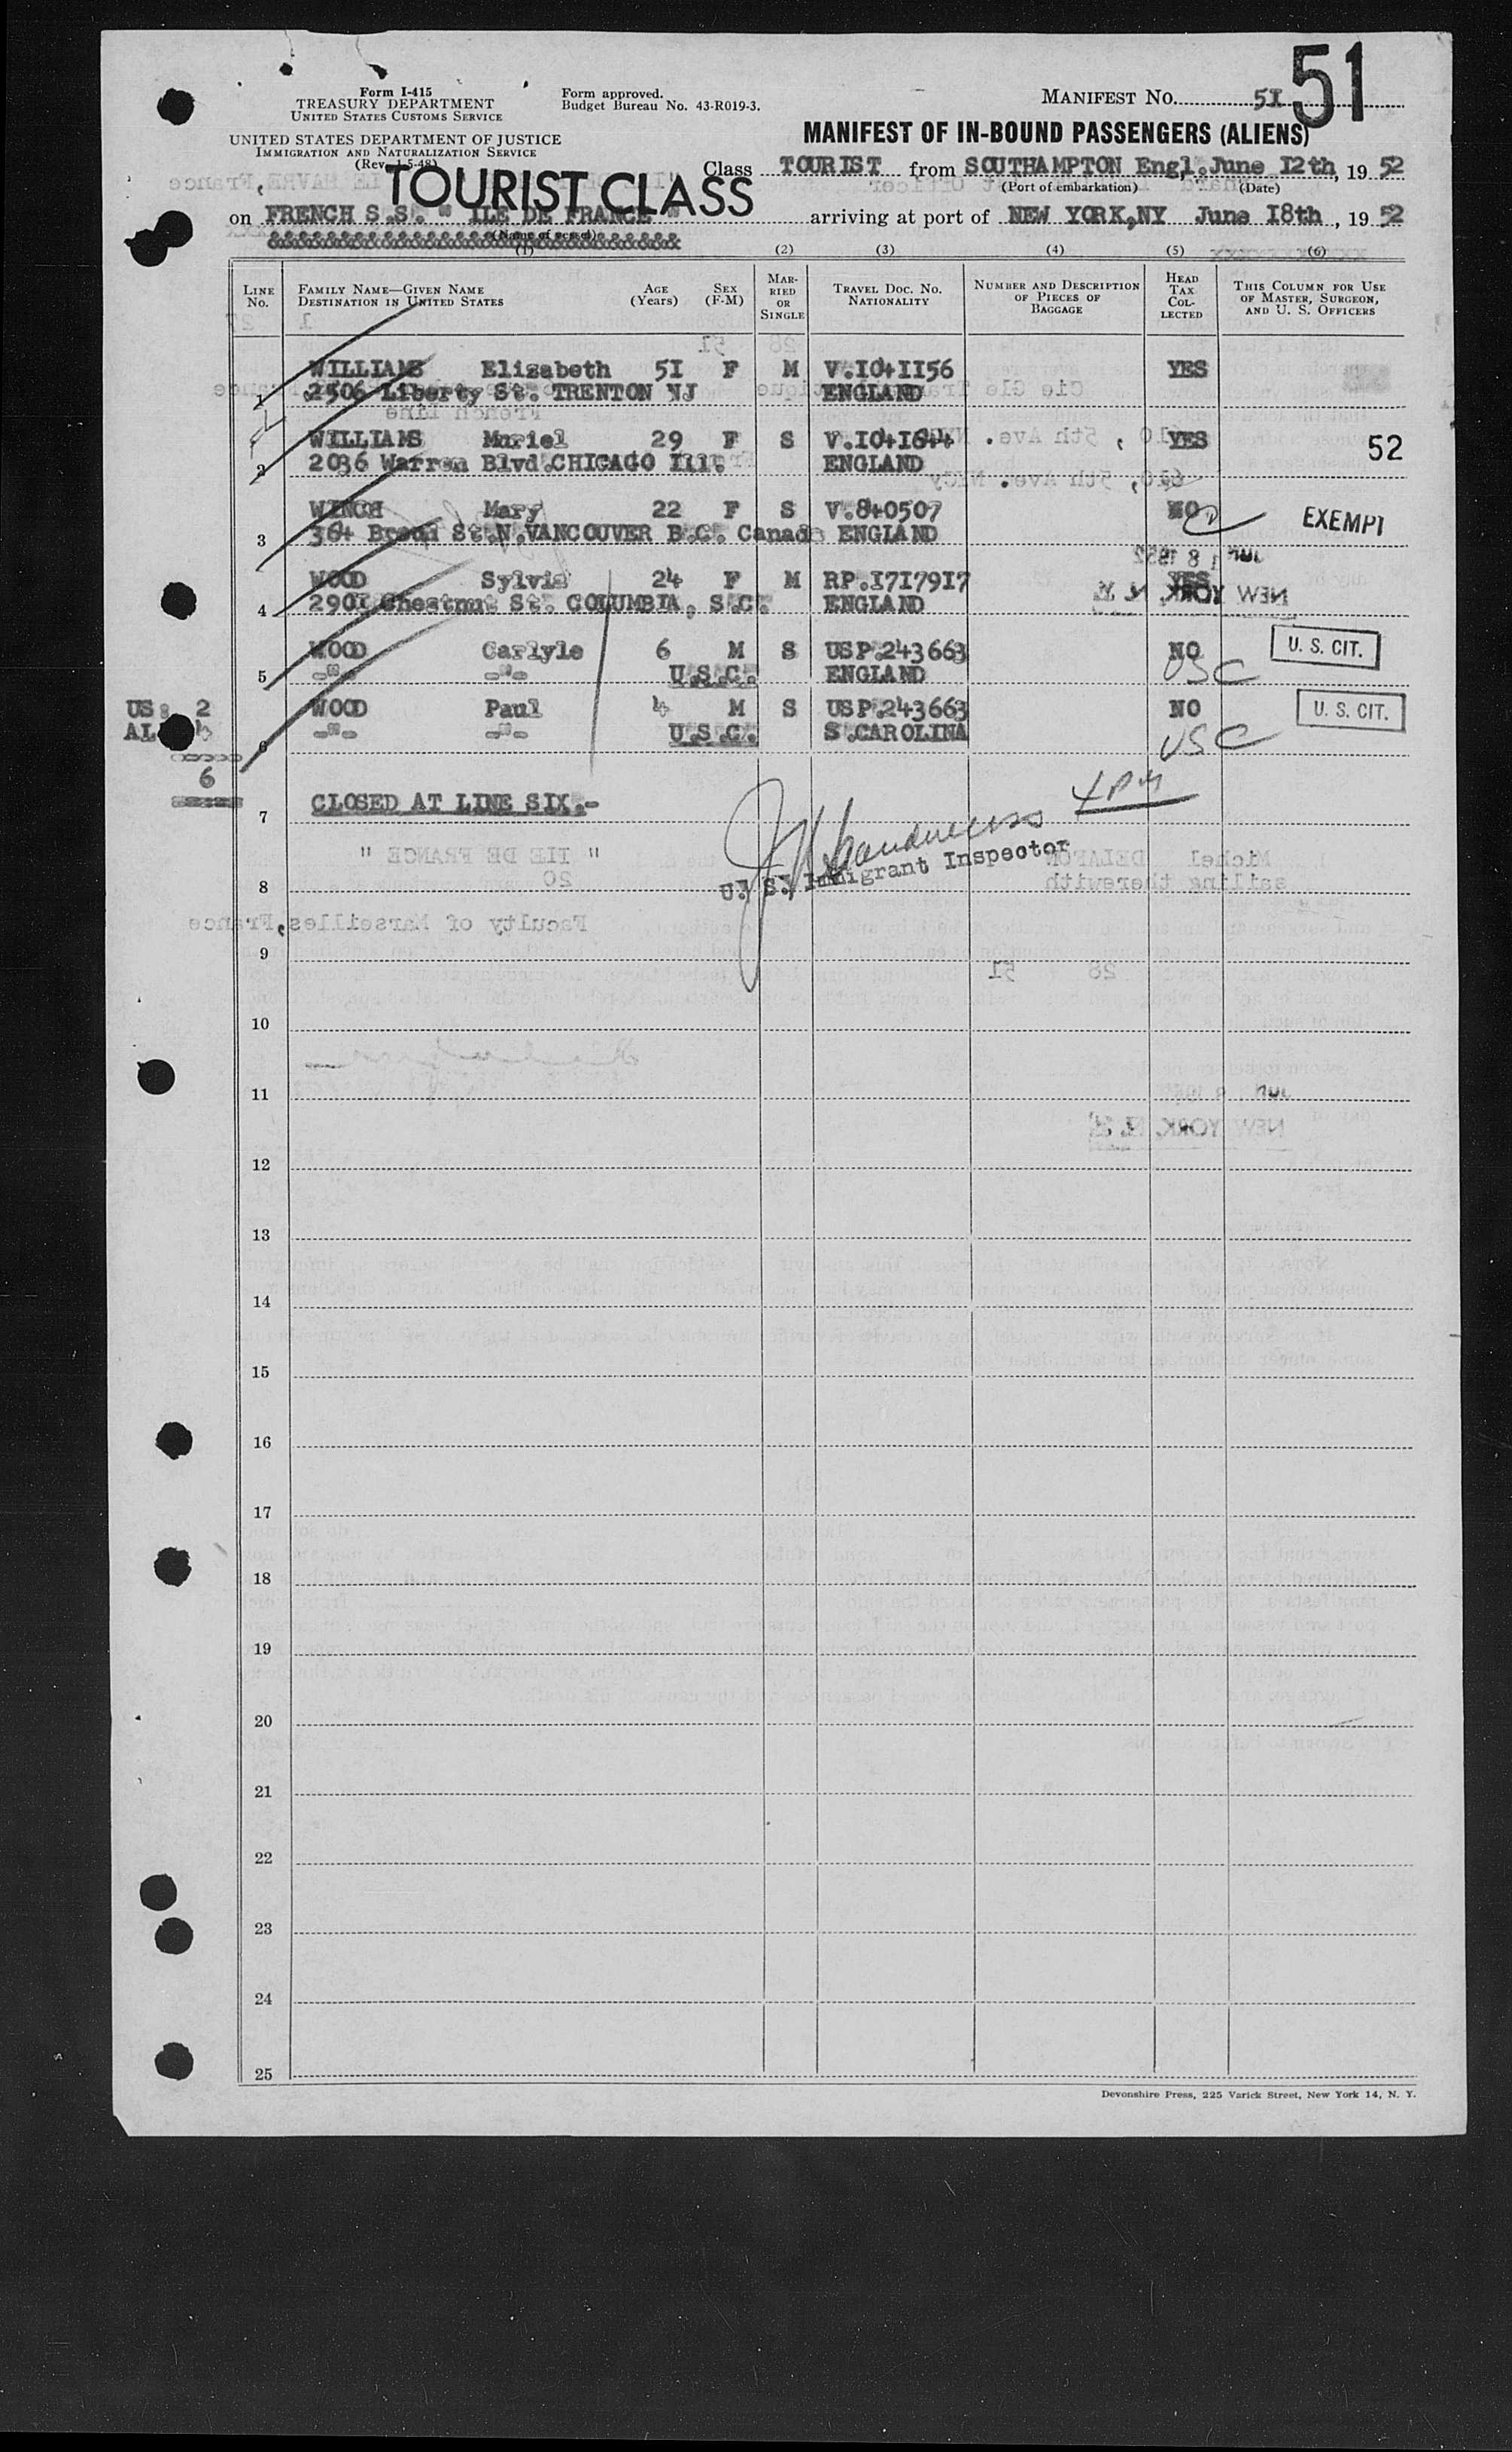 51
Form I-415
TREASURY DEPARTMENT
UNITED STATES CUSTOMS SERVICE
UNITED STATES DEPARTMENT OF JUSTICE
IMMIGRATION AND NATURALIZATION SERVICE
(Rev. 1-5-48)
Form approved.
Budget Bureau No. 43-R019-3.
MANIFEST NO. 5I
MANIFEST OF IN-BOUND PASSENGERS (ALIENS)
TOURIST CLASS
Class TOURIST from SOUTHAMPTON Engl. June I2th, 19 52
(Port of embarkation) (Date)
on FRENCH S.S. " ILE DE FRANCE " arriving at port of NEW YORK,NY June I8th, 19 52
(Name of vessel)
(1) (2) (3) (4) (5) (6)
LINE No.
FAMILY NAME—GIVEN NAME
DESTINATION IN UNITED STATES
AGE (Years)
SEX (F-M)
MARRIED OR SINGLE
TRAVEL DOC. NO. NATIONALITY
NUMBER AND DESCRIPTION OF PIECES OF BAGGAGE
HEAD TAX COLLECTED
THIS COLUMN FOR USE OF MASTER, SURGEON, AND U. S. OFFICERS
WILLIAMS Elizabeth 5I F M V.I04II56 YES
1 2506 Liberty St. TRENTON NJ ENGLAND
WILLIAMS Muriel 29 F S V.I04I644 YES 52
2 2036 Warren Blvd.CHICAGO Ill. ENGLAND
WINCH Mary 22 F S V.840507 NO EXEMPT
3 364 Broad St.N.VANCOUVER B.C. Canada ENGLAND
WOOD Sylvia 24 F M RP.I7I79I7 YES
4 290I Chestnut St. COLUMBIA, S.C. ENGLAND
WOOD Carlyle 6 M S USP.243663 NO U. S. CIT.
5 -"- -"- U.S.C. ENGLAND USC
US: 2 WOOD Paul 4 M S USP.243663 NO U. S. CIT.
AL: 4 6 -"- -"- U.S.C. S.CAROLINA USC
6
7 CLOSED AT LINE SIX.-
U. S. Immigrant Inspector
8
9
10
11
12
13
14
15
16
17
18
19
20
21
22
23
24
25
Devonshire Press, 225 Varick Street, New York 14, N. Y.